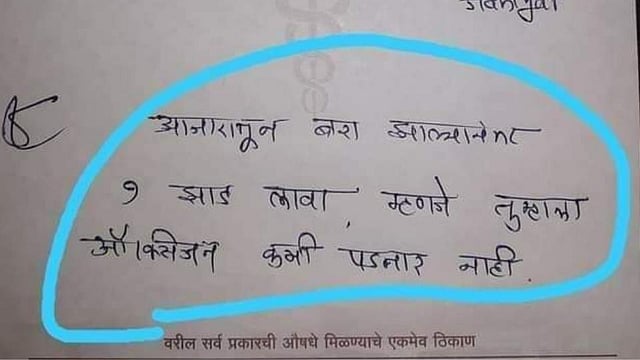 आजारातून बरा झाल्यानंतर
१ झाड लावा, म्हणजे तुम्हाला
ऑक्सिजन कमी पडणार नाही.
वरील सर्व प्रकारची औषधे मिळण्याचे एकमेव ठिकाण